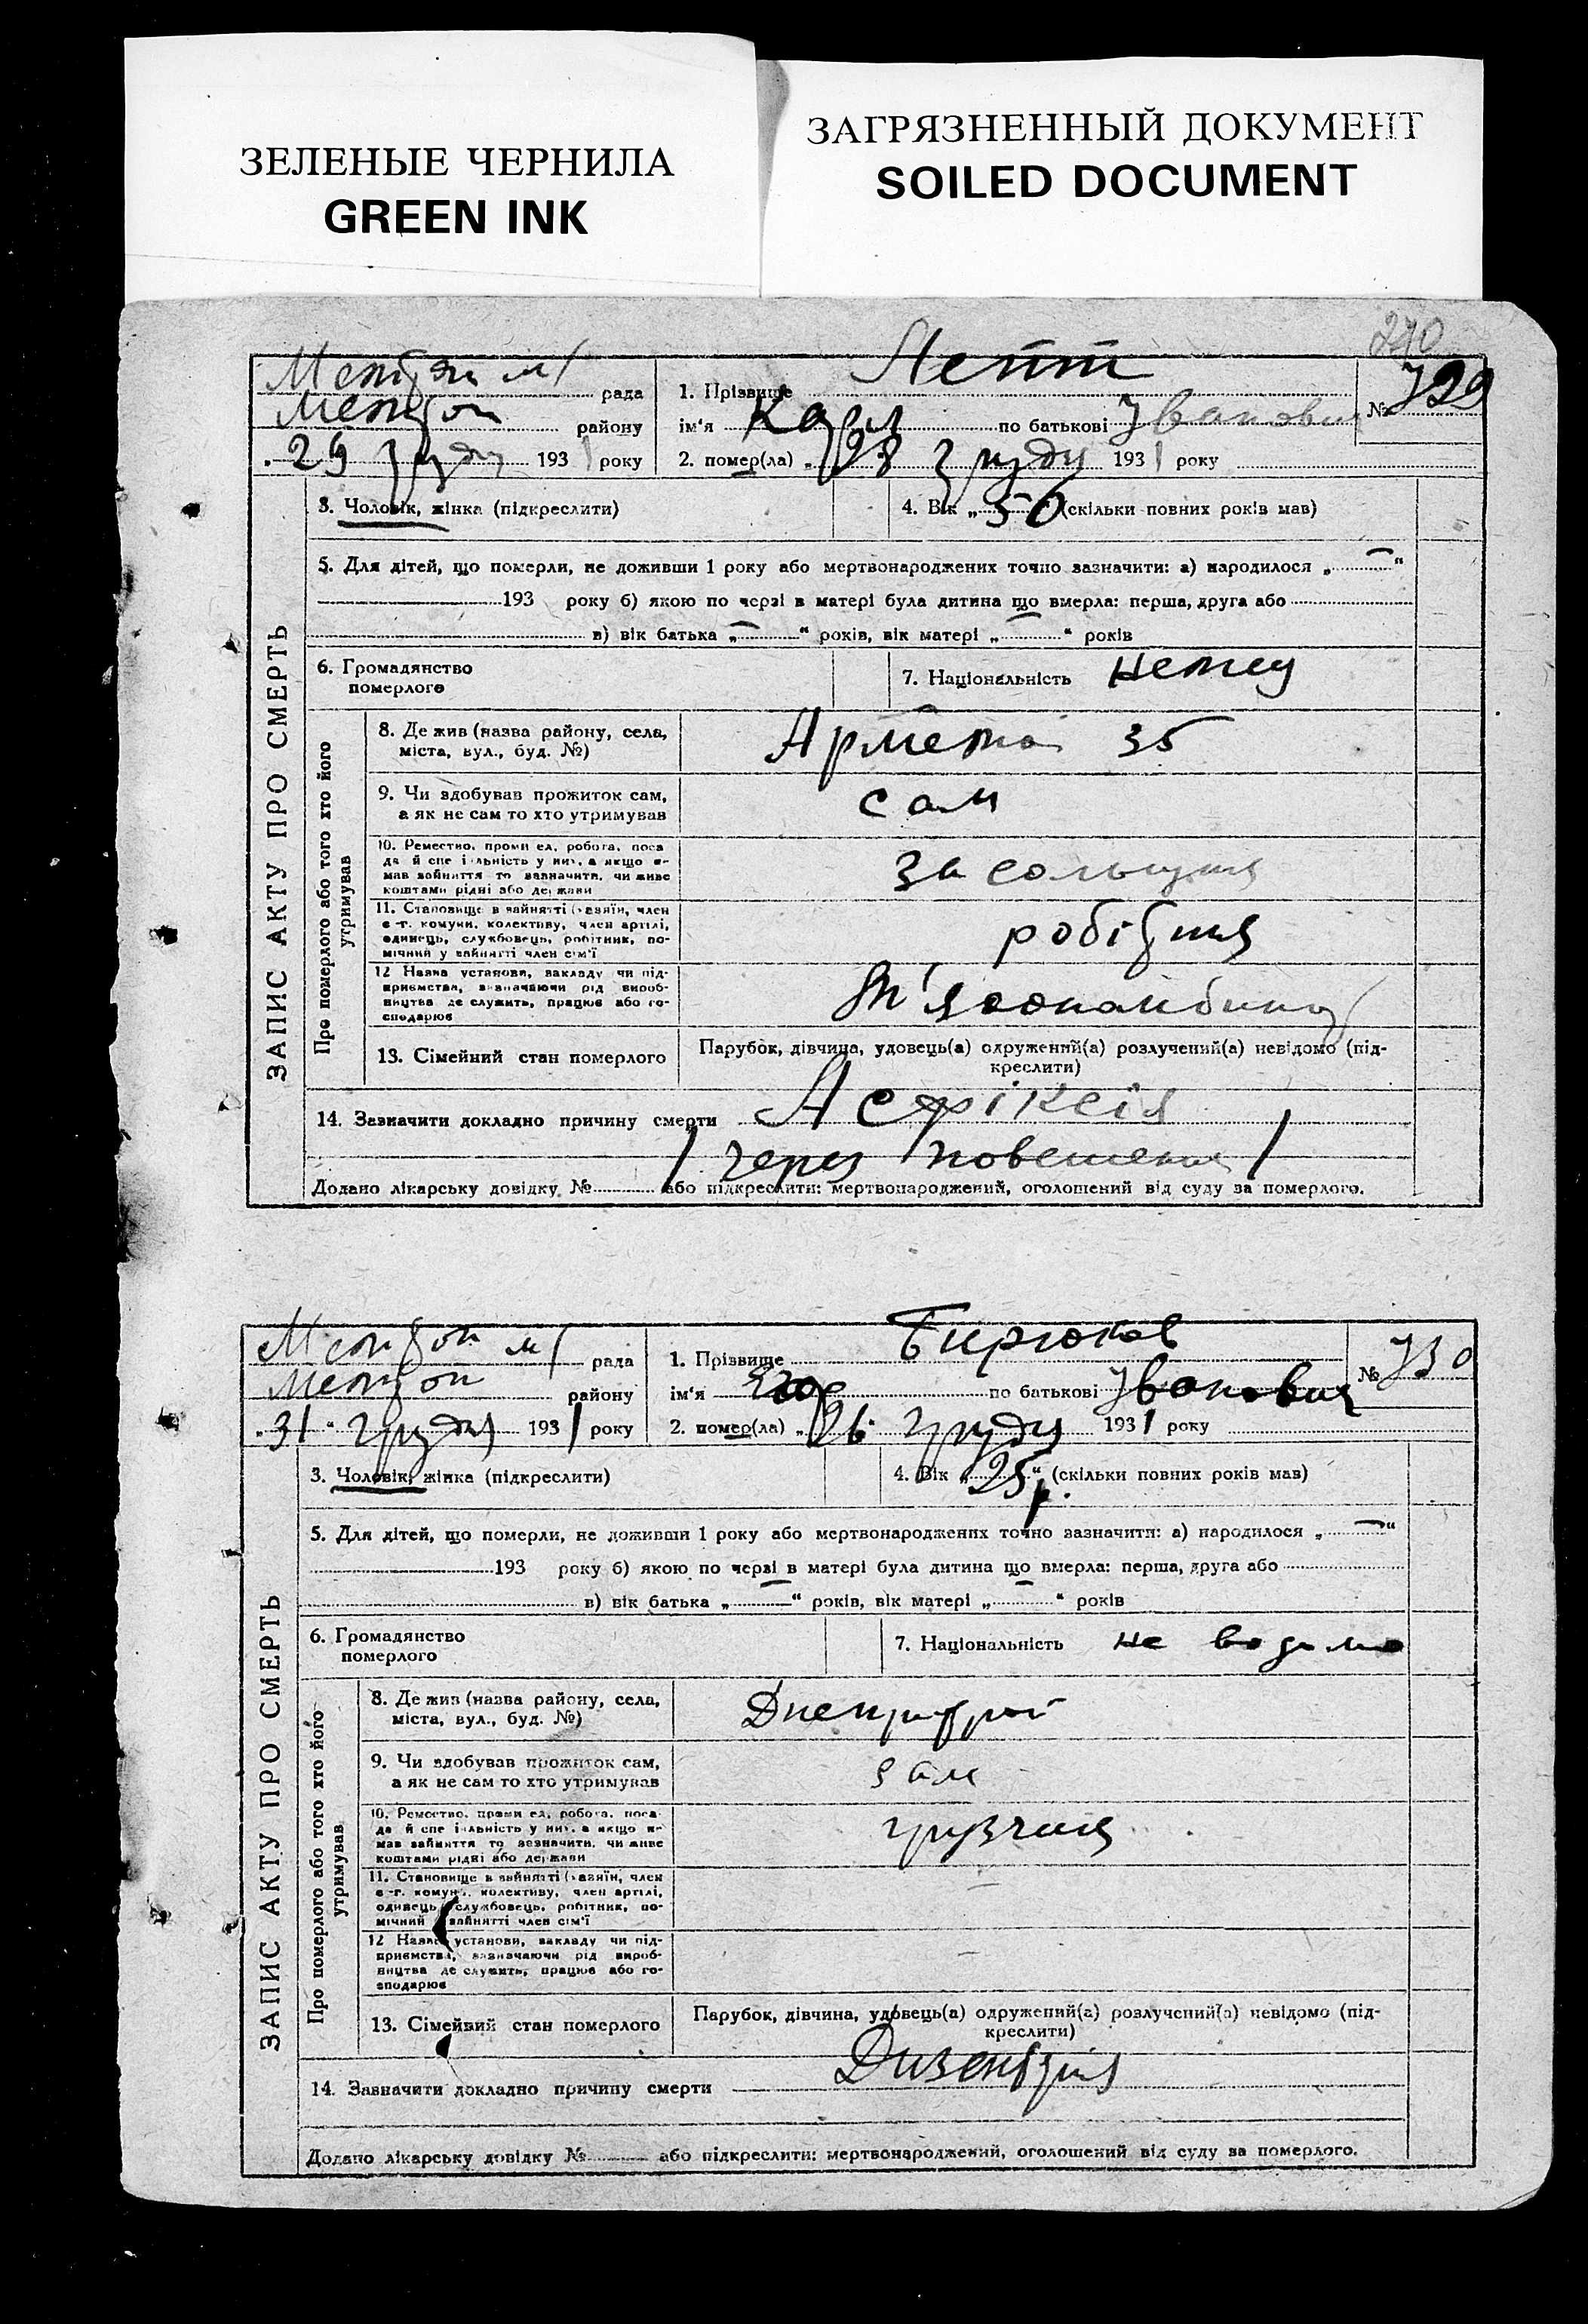 ЗЕЛЕНЫЕ ЧЕРНИЛА
GREEN INK
ЗАГРЯЗНЕННЫЙ ДОКУМЕНТ
SOILED DOCUMENT
240
рада
району
29 грудня 1931 року
1. Прізвище
ім'я Карл по батькові Іванович
2. помер(ла) „28 грудня 1931 року
№ 729
ЗАПИС АКТУ ПРО СМЕРТЬ
3. Чоловік, жінка (підкреслити)
4. Вік „56 (скільки повних років мав)
5. Для дітей, що померли, не доживши 1 року або мертвонароджених точно зазначити: а) народилося „ — “
193 року б) якою по черзі в матері була дитина що вмерла: перша, друга або
в) вік батька „ — “ років, вік матері „ — “ років
6. Громадянство
померлого
7. Національність немец
Про померлого або того хто його
утримував
8. Де жив (назва району, села,
міста, вул., буд. №)
35
9. Чи здобував прожиток сам,
а як не сам то хто утримував
сам
10. Ремество, промисел, робота, поса
да й спеціяльність у них, а якщо не
мав зайняття то зазначити, чи живе
коштами рідні або держави
11. Становище в зайнятті (хазяїн, член
с.-г. комуни, колективу, член артілі,
одинець, службовець, робітник, по-
мічний у зайнятті член сім'ї
робітник
12 Назва установи, закладу чи під-
приємства, зазначаючи рід вироб-
ництва де служить, працює або го-
сподарює
М'ясокомбинат
13. Сімейний стан померлого
Парубок, дівчина, удовець(а) одружений(а) розлучений(а) невідомо (під-
креслити)
14. Зазначити докладно причину смерти Асфіксія
/ через повешення /
Додано лікарську довідку № або підкреслити: мертвонароджений, оголошений від суду за померлого.
рада
району
„31“ грудня 1931 року
1. Прізвище Бирюков
ім'я Егор по батькові Іванович
2. помер(ла) „26“ грудня 1931 року
№ 730
ЗАПИС АКТУ ПРО СМЕРТЬ
3. Чоловік, жінка (підкреслити)
4. Вік „25 р.“ (скільки повних років мав)
5. Для дітей, що померли, не доживши 1 року або мертвонароджених точно зазначити: а) народилося „ — “
193 року б) якою по черзі в матері була дитина що вмерла: перша, друга або
в) вік батька „ — “ років, вік матері „ — “ років
6. Громадянство
померлого
7. Національність не
Про померлого або того хто його
утримував
8. Де жив (назва району, села,
міста, вул., буд. №)
9. Чи здобував прожиток сам,
а як не сам то хто утримував
сам
10. Ремество, промисел, робота, поса
да й спеціяльність у них, а якщо не
мав зайняття то зазначити, чи живе
коштами рідні або держави
грузчик
11. Становище в зайнятті (хазяїн, член
с.-г. комуни, колективу, член артілі,
одинець, службовець, робітник, по-
мічний у зайнятті член сім'ї
12 Назва установи, закладу чи під-
приємства, зазначаючи рід вироб-
ництва де служить, працює або го-
сподарює
13. Сімейний стан померлого
Парубок, дівчина, удовець(а) одружений(а) розлучений(а) невідомо (під-
креслити)
14. Зазначити докладно причину смерти Дизентрія
Додано лікарську довідку № або підкреслити: мертвонароджений, оголошений від суду за померлого.